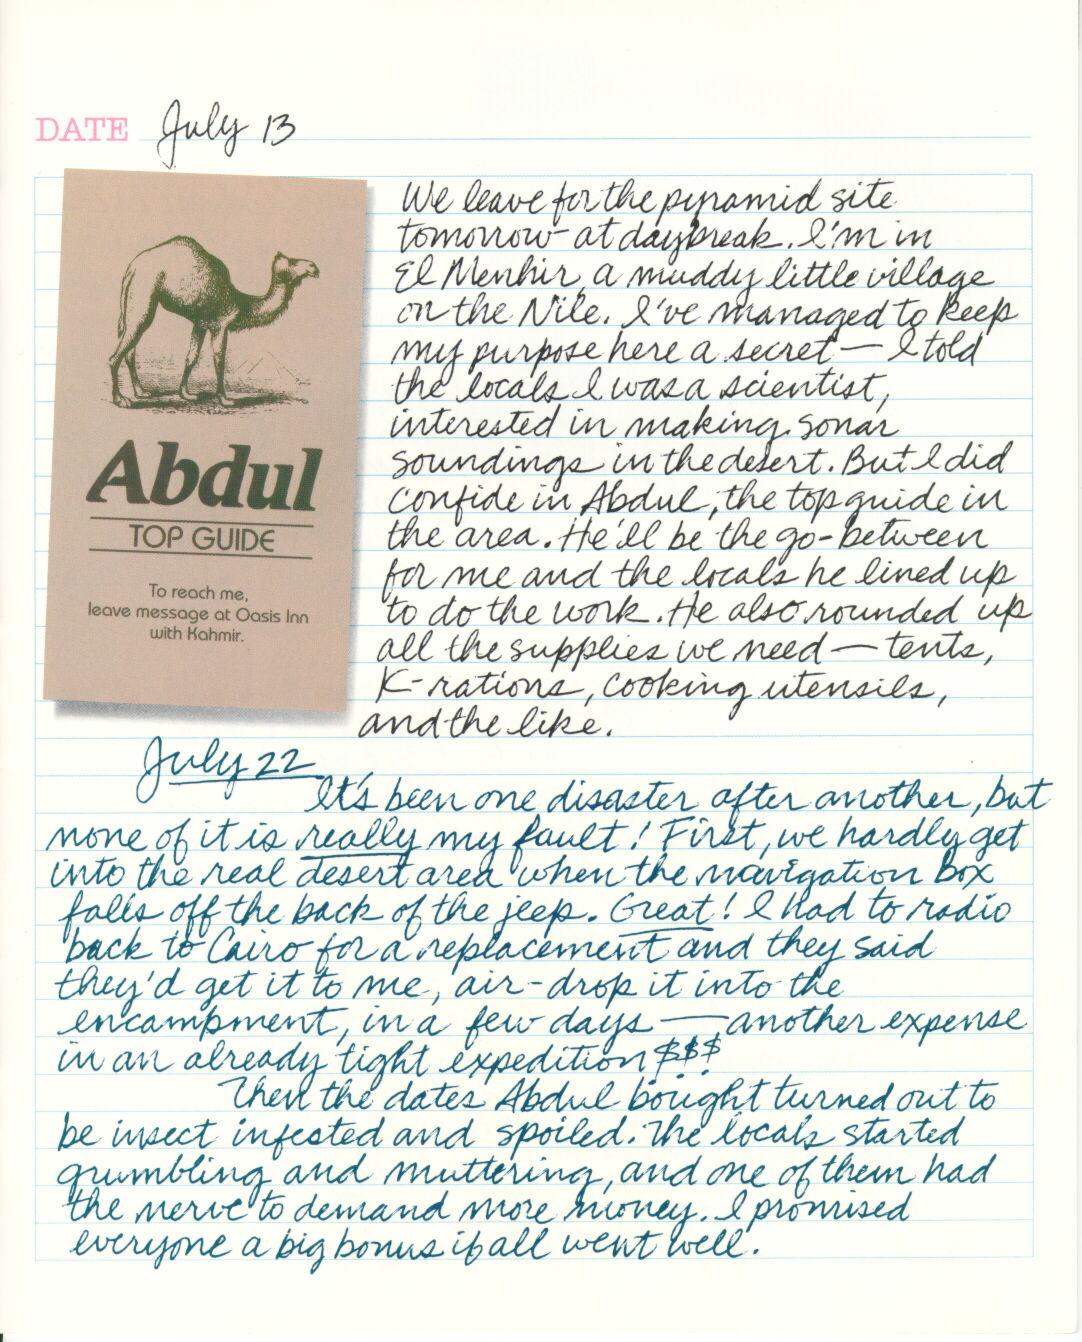 DATE July 13
Abdul
TOP GUIDE
To reach me,
leave message at Oasis Inn
with Kahmir.
We leave for the pyramid site
tomorrow at daybreak. I'm in
El Menhir, a muddy little village
on the Nile. I've managed to keep
my purpose here a secret — I told
the locals I was a scientist,
interested in making sonar
soundings in the desert. But I did
confide in Abdul, the top guide in
the area. He'll be the go-between
for me and the locals he lined up
to do the work. He also rounded up
all the supplies we need — tents,
K-rations, cooking utensils,
and the like.
July 22
It's been one disaster after another, but
none of it is really my fault! First, we hardly get
into the real desert area when the navigation box
falls off the back of the jeep. Great! I had to radio
back to Cairo for a replacement and they said
they'd get it to me, air-drop it into the
encampment, in a few days — another expense
in an already tight expedition $$$
Then the dates Abdul bought turned out to
be insect infested and spoiled. The locals started
grumbling and muttering, and one of them had
the nerve to demand more money. I promised
everyone a big bonus if all went well.